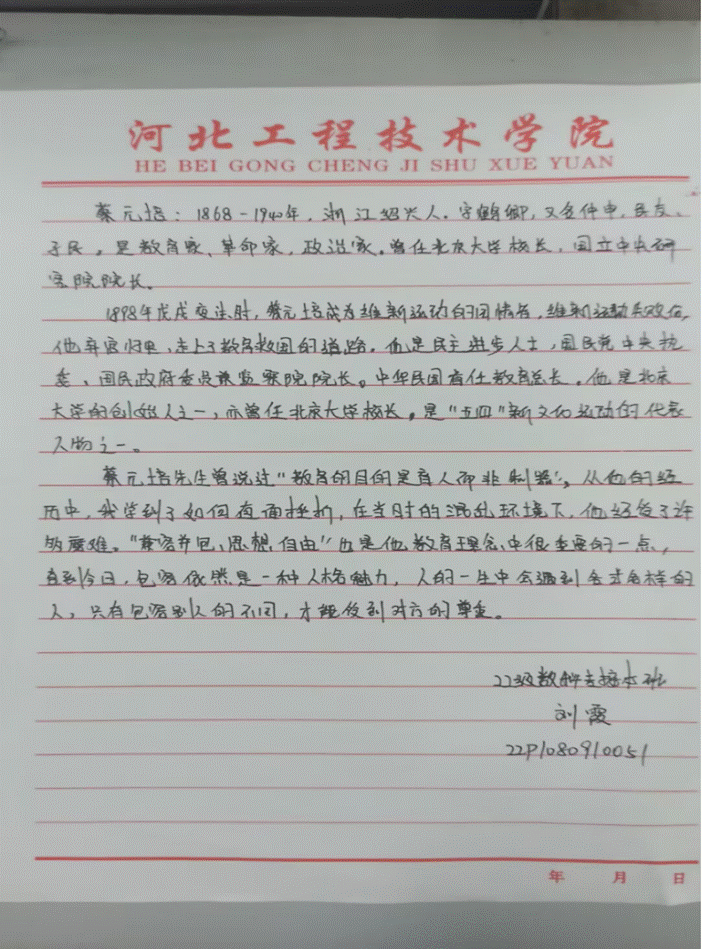 河北工程技术学院
HE BEI GONG CHENG JI SHU XUE YUAN
蔡元培：1868-1940年，浙江绍兴人。字鹤卿，又名仲申，民友、
孑民，是教育家、革命家，政治家。曾任北京大学校长，国立中央研
究院院长。
1898年戊戌变法时，蔡元培成为维新运动的同情者，维新运动失败后，
他弃官归里，走上了教育救国的道路。他是民主进步人士，国民党中央执
委、国民政府委员兼监察院院长。中华民国首任教育总长。他是北京
大学的创始人之一，亦曾任北京大学校长。是"五四"新文化运动的代表
人物之一。
蔡元培先生曾说过"教育的目的是育人而非制器"，从他的经
历中，我学到了如何直面挫折，在当时的混乱环境下，他经受了许
多磨难。"兼容并包、思想自由"也是他教育理念中很重要的一点，
直到今日，包容依然是一种人格魅力，人的一生中会遇到各式各样的
人，只有包容别人的不同，才能收到对方的尊重。
22级数科专接本班
刘霞
22P1080910051
年 月 日